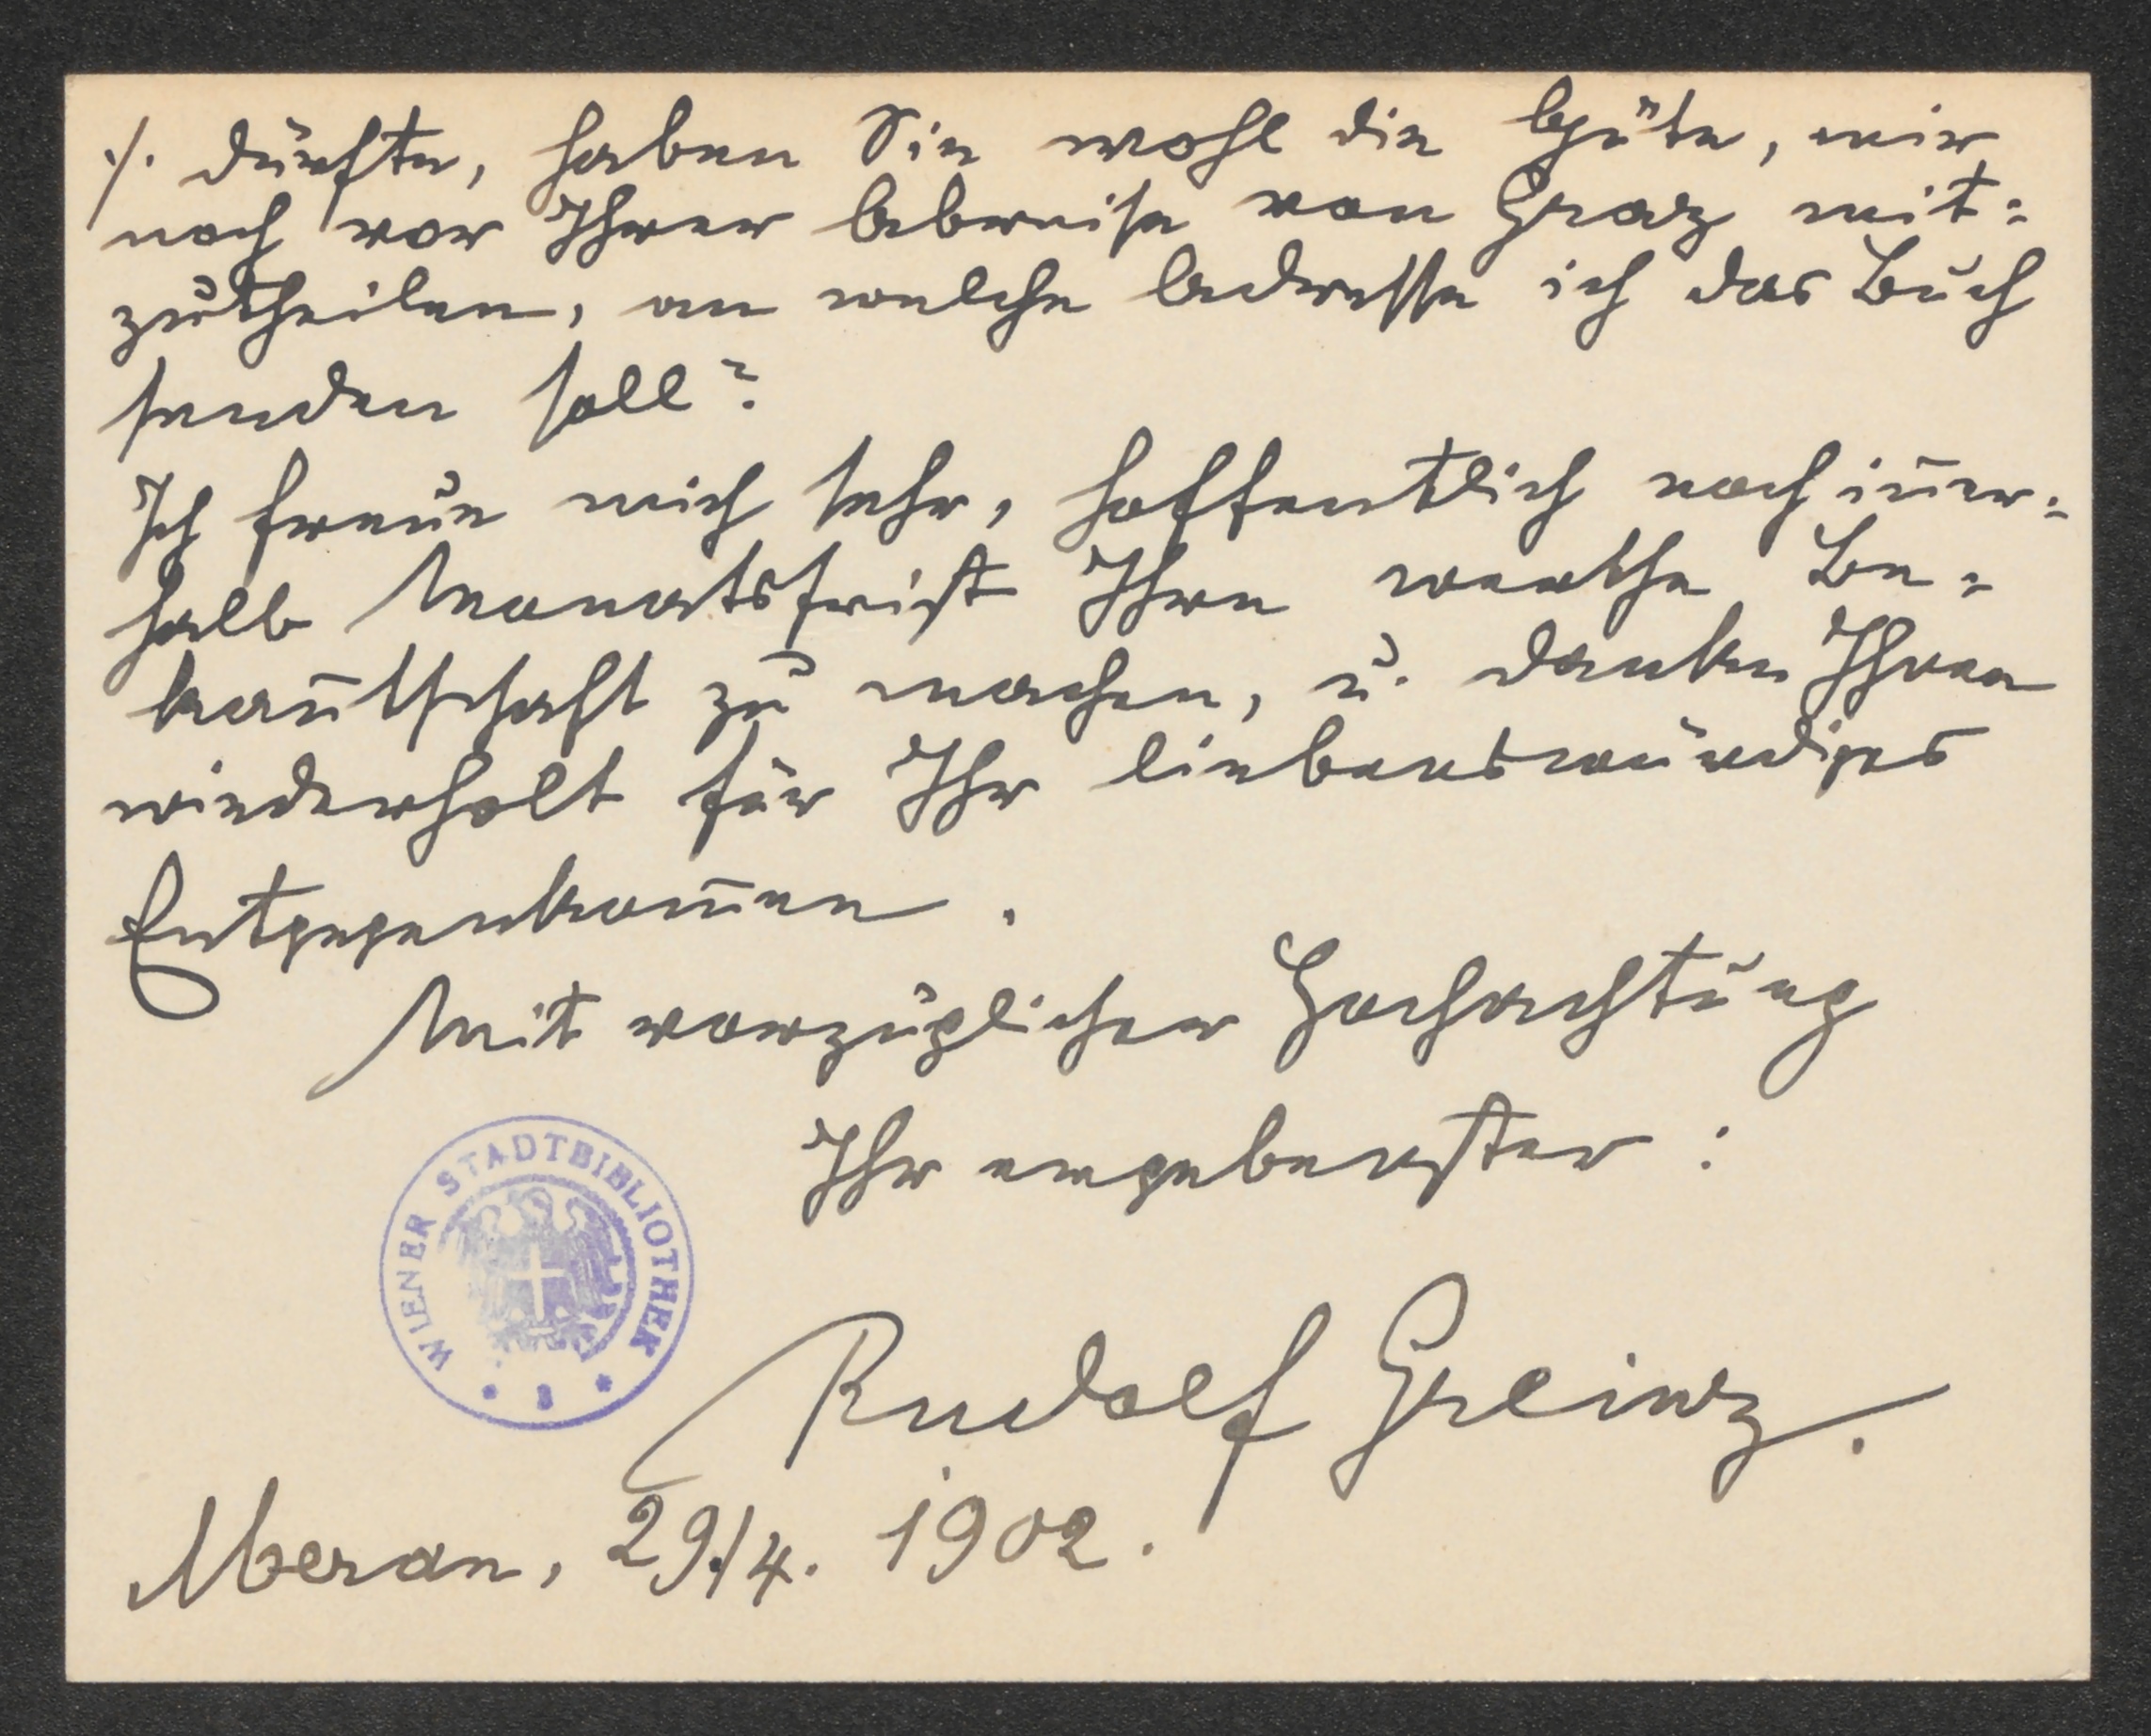 ./. dürfte, haben Sie wohl die Güte, mir
noch vor Ihrer Abreise von Graz mit=
zutheilen, an welche Adresse ich das Buch
senden soll?
Ich freue mich sehr, hoffentlich noch iñer=
halb Monatsfrist Ihre werthe Be=
kañtschaft zu machen, u. danke Ihnen
wiederholt für Ihr liebenswürdiges
Entgegenkom̄en.
Mit vorzüglicher Hochachtung
Ihr ergebenster:
WIENER STADTBIBLIOTHEK
Rudolf Greinz.
Meran, 29./4. 1902.